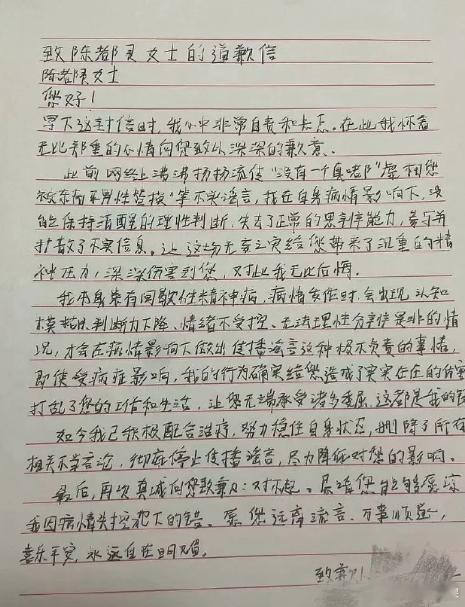 致陈都灵女士的道歉信
陈都灵女士
您好！
写下这封信时，我心中非常自责和忐忑。在此我怀着
无比郑重的心情向您致以深深的歉意。
此前网络上沸沸扬扬流传“没有一个真都
等不实谣言，我在自身病情影响下，没
能保持清醒的理性判断，失去了正常的思辨能力，参与并
扩散了不实信息。让这场无妄之灾给您带来了沉重的精
神压力，深深伤害到您，对此我无比后悔。
我本身患有间歇性精神病，病情发作时，会出现认知
模糊、判断力下降、情绪不受控、无法理性分辨是非的情
况，才会在病情影响下做出传播谣言这种极不负责的事情，
即使受病症影响，我的行为确实给您造成了实实在在的伤害
打乱了您的工作和生活，让您无端承受诸多委屈，这都是我的
如今我已积极配合治疗，努力稳住自身状态，删除了所有
相关不当言论，彻底停止传播谣言，尽力降低对您的影响。
最后，再次真诚向您致歉：对不起。恳请您能够原谅
我因病情失控犯下的错。愿您远离流言、万事顺遂，
喜乐平安，永远自在明媚。
致歉人：